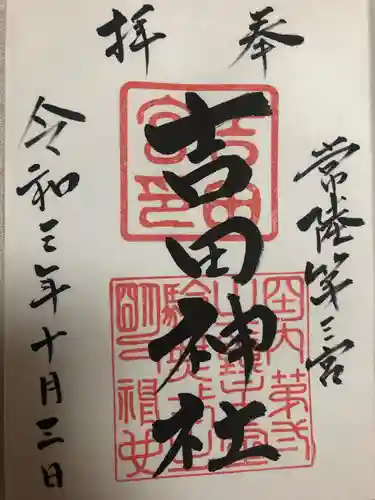 奉拝
常陸第三宮
吉田神社
令和三年十月三日